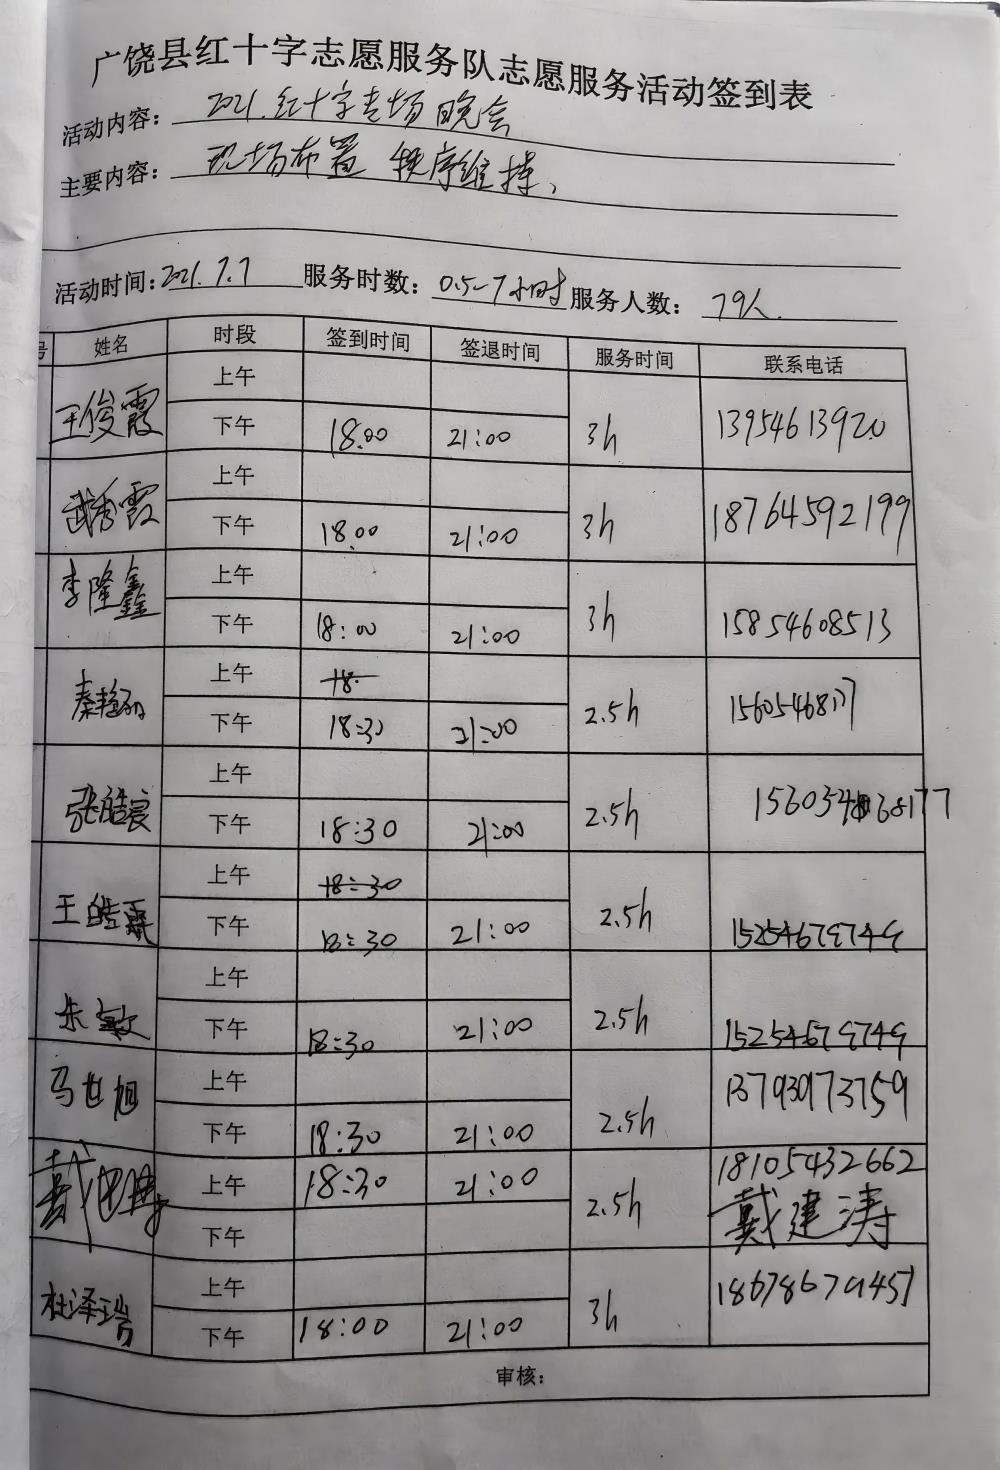 广饶县红十字志愿服务队志愿服务活动签到表
活动内容：2021.红十字专场晚会
主要内容：现场布置 秩序维护、
活动时间：2021.7.7 服务时数：0.5-7小时 服务人数：79人
号 姓名 时段 签到时间 签退时间 服务时间 联系电话
王俊霞 上午
下午 18.00 21:00 3h 13954613920
武秀霞 上午
下午 18.00 21:00 3h 18764592199
李隆鑫 上午
下午 18:00 21:00 3h 15854608513
秦 上午 18
下午 18:30 21:00 2.5h
张皓宸 上午
下午 18:30 21:00 2.5h 15605468177
王皓霖 上午 18:30
下午 18:30 21:00 2.5h 15254679749
朱敏 上午
下午 18:30 21:00 2.5h 15254679749
马世旭 上午
下午 18:30 21:00 2.5h 13793973759
戴 上午 18:30 21:00 2.5h 18105432662
戴建涛
下午
杜泽瑞 上午
下午 18:00 21:00 3h 18678679457
审核：